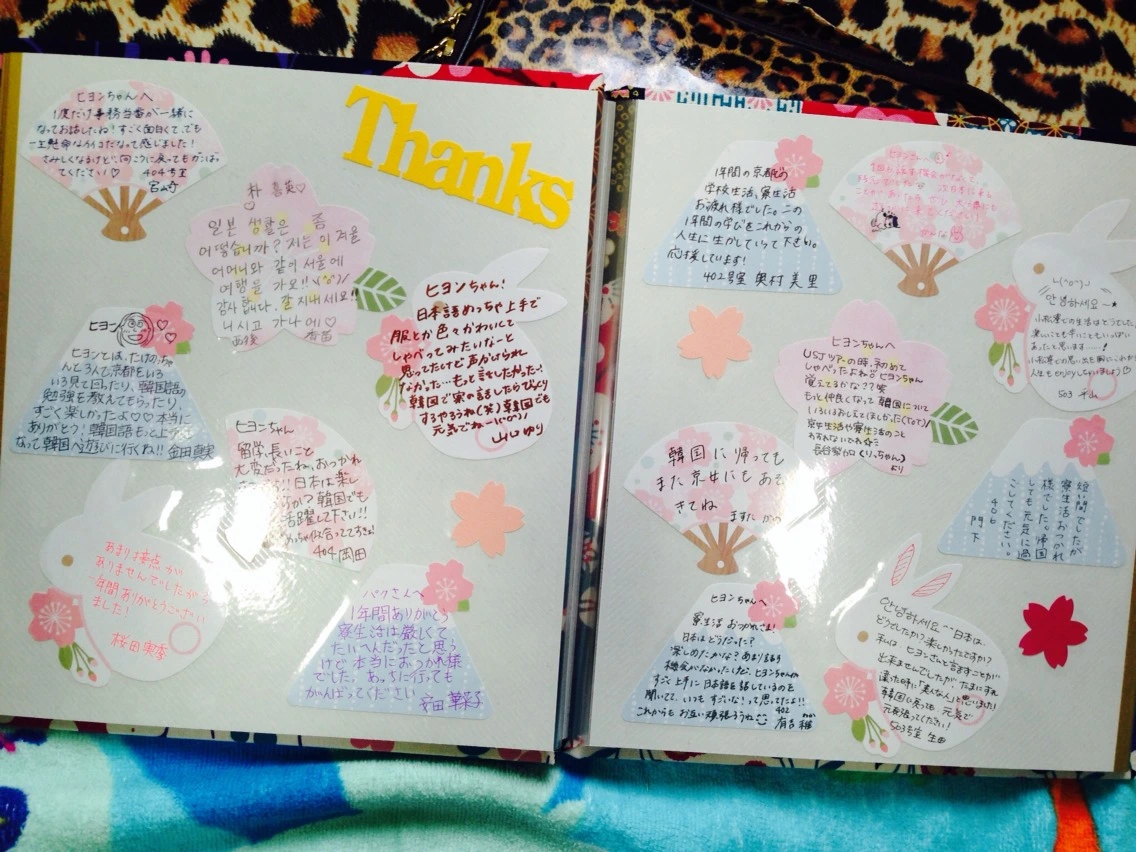 ヒョンちゃんへ
1度だけ事務当番が一緒に
なってお話したね！すごく面白くて、でも
一生懸命な子だなって感じました！
さみしくなるけど、向こうに戻ってもがんばっ
てください♡ 404号室
宮崎
Thanks
朴 喜英♡
일본 생활은 좀
어떻습니까? 저는 이 겨울
어머니와 같이 서울에
여행을 가요!!
감사합니다. 잘 지내세요!!
니시고 가나에♡
ヒヨンちゃん！
日本語めっちゃ上手で
服とか色々かわいくて
しゃべってみたいなーと
思ってたけど声かけられ
なかった…もっと話したかったー！
韓国で寮の話したらびっくり
するやろうね(笑)韓国でも
元気でねー
山口ゆり
ヒヨン
ヒヨンとは、たけのっちゃ
んと3人で京都をいろ
いろ見て回ったり、韓国語の
勉強を教えてもらったり、
すごく楽しかったよ♡♡本当に
ありがとう！韓国語もっと上手く
なって韓国へ遊びに行くね!! 金田真実
ヒヨンちゃん
留学、長いこと
大変だったね。おつかれ
日本は楽し
か？韓国でも
活躍して下さい!!
ちゃ似合っててすきよ
404 岡田
あまり接点が
ありませんでしたが
一年間ありがとうござい
ました！
桜田実季
パクさんへ
1年間ありがとう
寮生活は厳しくて
たいへんだったと思う
けど本当におつかれ様
でした。あっちに行っても
がんばってください
安田
1年間の京都の
学校生活、寮生活
お疲れ様でした。この
1年間の学びをこれからの
人生に生かしていって下さい。
応援しています！
402号室 奥村美里
ヒヨンちゃんへ
안녕하세요～
小松寮での生活はどうでした
楽しいことも辛いこともいっぱい
あったと思います
小松寮での思い出を胸にこれから
人生もenjoyしちゃいましょう♡
503
ヒヨンちゃんへ
USJツアーの時、初めて
しゃべったよね。ヒヨンちゃん
覚えてるかな？？笑
もっと仲良くなって韓国について
いろいろおしえてほしかった(ToT)/
京女生活や寮生活のこと
わすれないでね☆
(りっちゃん)
より
韓国に帰っても
また京女にもあそ
きてね
短い間でしたが
寮生活おつかれ
様でした。帰国
しても元気に過
ごしてください。
406
門下
ヒヨンちゃんへ
寮生活おつかれさま！
日本はどうだった？
楽しめたかな？あまり話す
機会がなかったけど、ヒヨンちゃんが
すごく上手に日本語を話しているのを
聞いて、いつもすごいな！って思ってたよ!!
これからもお互い頑張ろうね
402
有吉
안녕하세요^^日本は、
どうでしたか？楽しかったですか？
私は ヒヨンさんと話すことが
出来ませんでしたが、たまにすれ
違った時に「美人なん」と思いました！
韓国に戻っても 元気で
頑張ってください！
503号室 生田